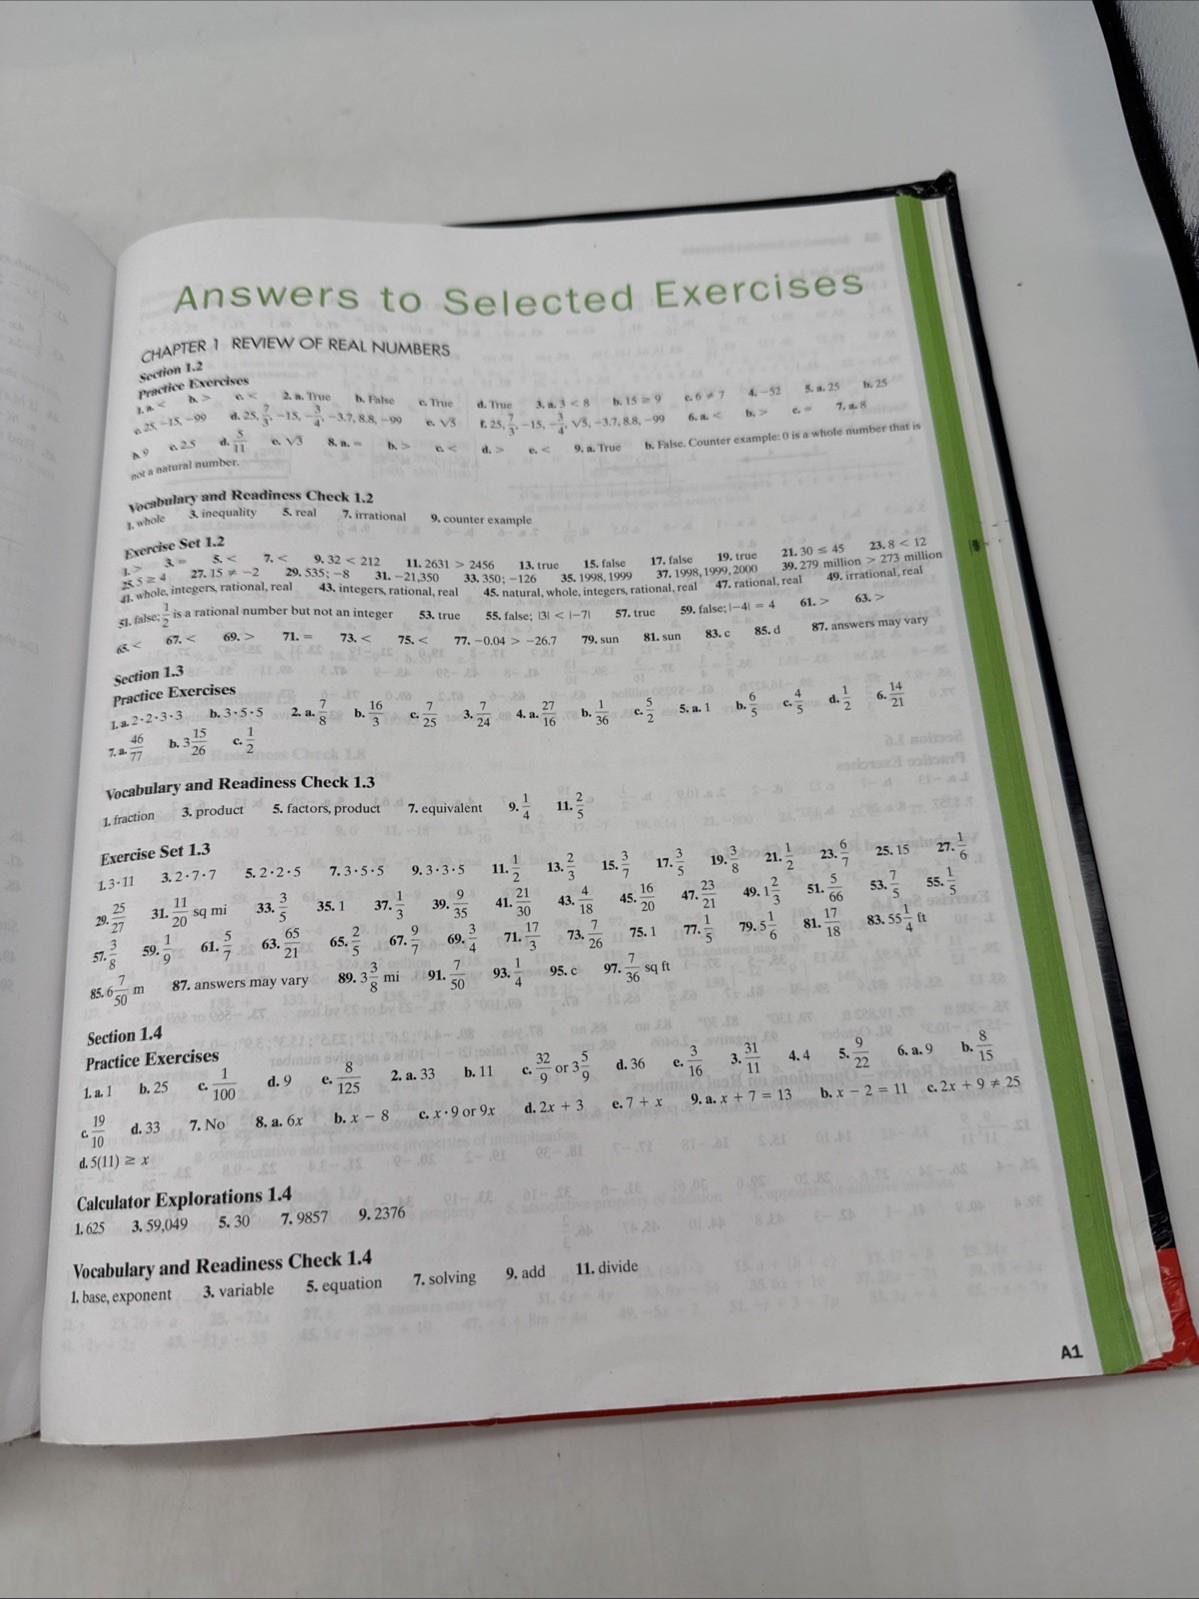 Answers to Selected Exercises
CHAPTER 1 REVIEW OF REAL NUMBERS
Section 1.2
Practice Exercises
1. a. < b. > c. < 2. a. True b. False c. True d. True 3. a. 3 < 8 b. 15 ≥ 9 c. 6 ≠ 7 4. −52 5. a. 25 b. 25
c. 25, −15, −99 d. 25, 7/3, −15, −3/4, −3.7, 8.8, −99 e. √5 f. 25, 7/3, −15, −3/4, √5, −3.7, 8.8, −99 6. a. < b. > c. = 7. a. 8
b. 9 c. 2.5 d. 5/11 e. √3 8. a. = b. > c. < d. > e. < 9. a. True b. False. Counter example: 0 is a whole number that is
not a natural number.
Vocabulary and Readiness Check 1.2
1. whole 3. inequality 5. real 7. irrational 9. counter example
Exercise Set 1.2
1. > 3. = 5. < 7. < 9. 32 < 212 11. 2631 > 2456 13. true 15. false 17. false 19. true 21. 30 ≤ 45 23. 8 < 12
25. 5 ≥ 4 27. 15 ≠ −2 29. 535; −8 31. −21,350 33. 350; −126 35. 1998, 1999 37. 1998, 1999, 2000 39. 279 million > 273 million
41. whole, integers, rational, real 43. integers, rational, real 45. natural, whole, integers, rational, real 47. rational, real 49. irrational, real
51. false; 1/2 is a rational number but not an integer 53. true 55. false; |3| < |−7| 57. true 59. false; |−4| = 4 61. > 63. >
65. < 67. < 69. > 71. = 73. < 75. < 77. −0.04 > −26.7 79. sun 81. sun 83. c 85. d 87. answers may vary
Section 1.3
Practice Exercises
1. a. 2·2·3·3 b. 3·5·5 2. a. 7/8 b. 16/3 c. 7/25 3. 7/24 4. a. 27/16 b. 1/36 c. 5/2 5. a. 1 b. 6/5 c. 4/5 d. 1/2 6. 14/21
7. a. 46/77 b. 3 15/26 c. 1/2
Vocabulary and Readiness Check 1.3
1. fraction 3. product 5. factors, product 7. equivalent 9. 1/4 11. 2/5
Exercise Set 1.3
1. 3·11 3. 2·7·7 5. 2·2·5 7. 3·5·5 9. 3·3·5 11. 1/2 13. 2/3 15. 3/7 17. 3/5 19. 3/8 21. 1/2 23. 6/7 25. 15 27. 1/6
29. 25/27 31. 11/20 sq mi 33. 3/5 35. 1 37. 1/3 39. 9/35 41. 21/30 43. 4/18 45. 16/20 47. 23/21 49. 1 2/3 51. 5/66 53. 7/5 55. 1/5
57. 3/8 59. 1/9 61. 5/7 63. 65/21 65. 2/5 67. 9/7 69. 3/4 71. 17/3 73. 7/26 75. 1 77. 1/5 79. 5 1/6 81. 17/18 83. 55 1/4 ft
85. 6 7/50 m 87. answers may vary 89. 3 3/8 mi 91. 7/50 93. 1/4 95. c 97. 7/36 sq ft
Section 1.4
Practice Exercises
1. a. 1 b. 25 c. 1/100 d. 9 e. 8/125 2. a. 33 b. 11 c. 32/9 or 3 5/9 d. 36 e. 3/16 3. 31/11 4. 4 5. 9/22 6. a. 9 b. 8/15
c. 19/10 d. 33 7. No 8. a. 6x b. x − 8 c. x·9 or 9x d. 2x + 3 e. 7 + x 9. a. x + 7 = 13 b. x − 2 = 11 c. 2x + 9 ≠ 25
d. 5(11) ≥ x
Calculator Explorations 1.4
1. 625 3. 59,049 5. 30 7. 9857 9. 2376
Vocabulary and Readiness Check 1.4
1. base, exponent 3. variable 5. equation 7. solving 9. add 11. divide
A1